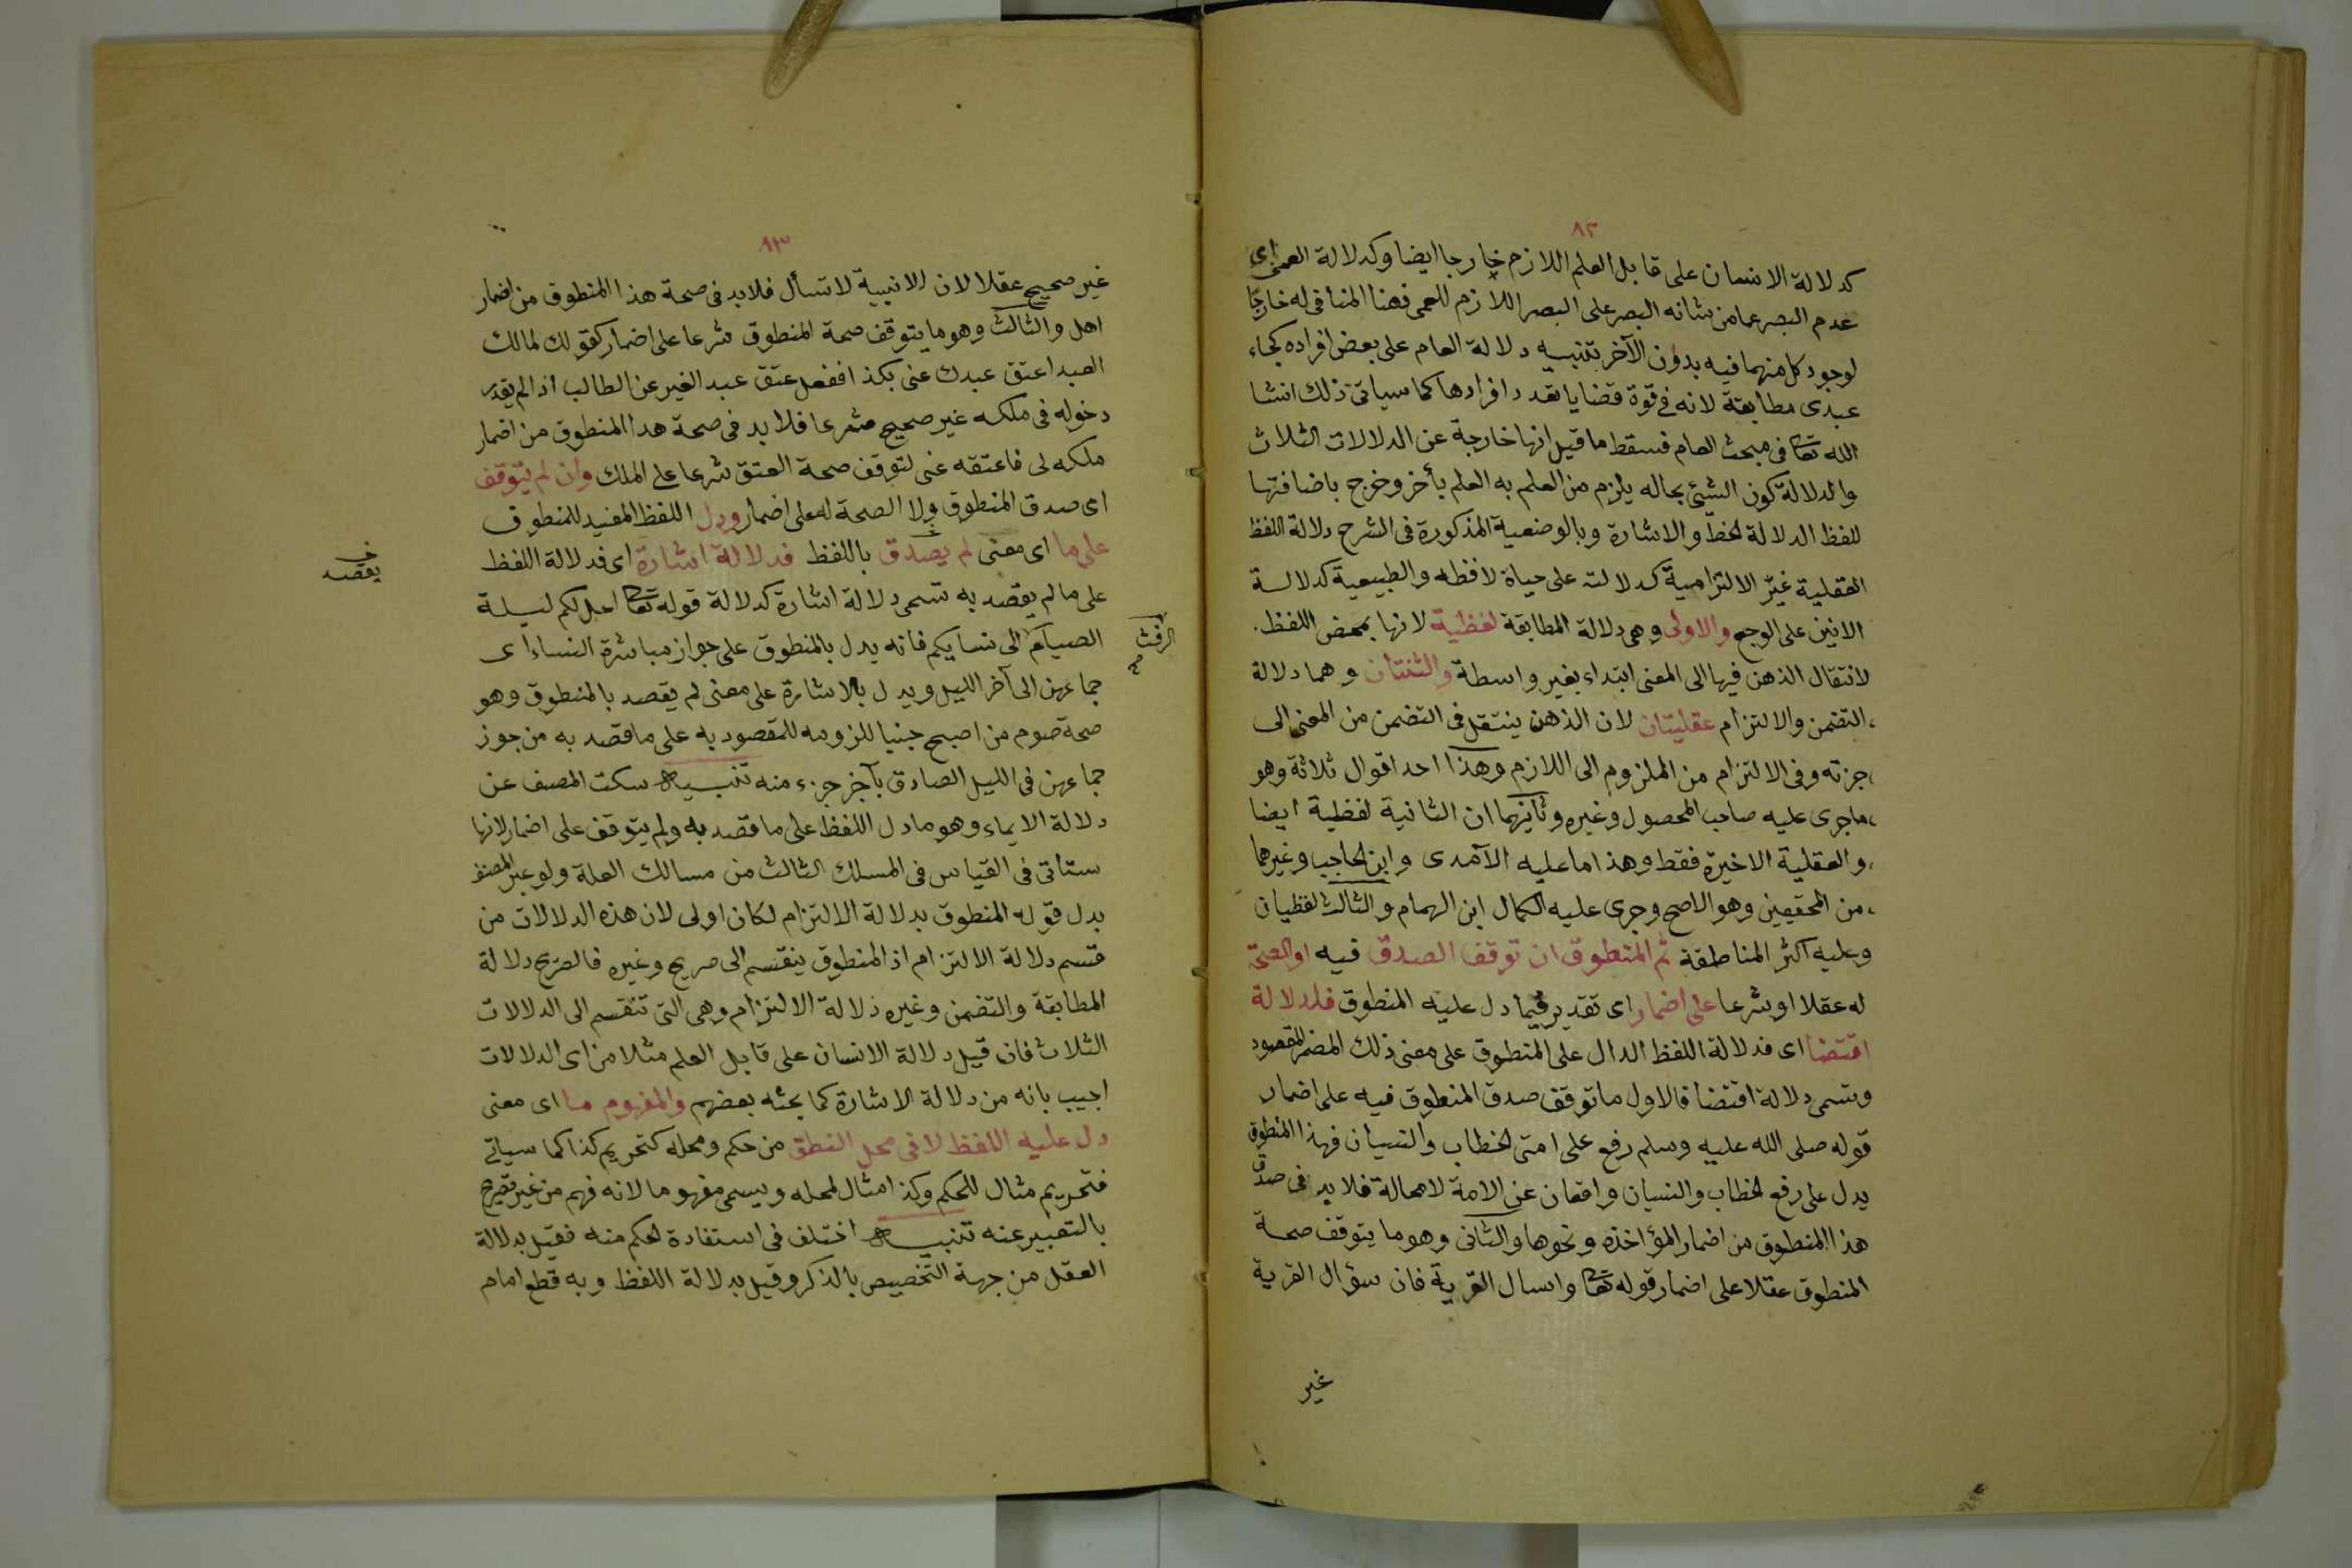 ٨٢
كدلالة الانسان على قابل العلم اللازم خارجا ايضا وكدلالة العمى اى
عدم البصر عما من شانه البصر على البصر اللازم للعمى فهنا المنافى له خارجا
لوجود كل منهما فيه بدون الآخر تنبيه دلالة العام على بعض افراده كجاء
عبدى مطابقة لانه فى قوة قضايا بعدد افرادها كما سياتى ذلك انشا
الله تعا فى مبحث العام فسقط ما قيل انها خارجة عن الدلالات الثلاث
والدلالة كون الشئ بحاله يلزم من العلم به العلم بأخر وخرج باضافتها
للفظ الدلالة لخط والاشارة وبالوضعية المذكورة فى الشرح دلالة اللفظ
العقلية غير الالتزامية كدلالته على حياة لافظه والطبيعية كدلالة
الانين على الوجع والاولى وهى دلالة المطابقة لفظية لانها بمحض اللفظ
لانتقال الذهن فيها الى المعنى ابتداء بغير واسطة والثنتان وهما دلالة
التضمن والالتزام عقليتان لان الذهن ينتقل فى التضمن من المعنى الى
جزئه وفى الالتزام من الملزوم الى اللازم وهذا احد اقوال ثلاثة وهو
ماجرى عليه صاحب المحصول وغيره وثانيهما ان الثانية لفظية ايضا
والعقلية الاخيرة فقط وهذا ما عليه الآمدى وابن لحاجب وغيرهما
من المحققين وهو الاصح وجرى عليه الكمال ابن الهمام والثالث لفظيان
وعليه اكثر المناطقة ثم المنطوق ان توقف الصدق فيه او الصحة
له عقلا او شرعا على اضمار اى تقدير فيما دل عليه المنطوق فلدلالة
اقتضا اى فدلالة اللفظ الدال على المنطوق على معنى ذلك المضمر المقصود
وتسمى دلالة اقتضا فالاول ما توقف صدق المنطوق فيه على اضمار
قوله صلى الله عليه وسلم رفع على امتى لخطاب والنسيان فهذا المنطوق
يدل على رفع لخطاب والنسيان واقعان عن الامة لا محالة فلا بد فى صدق
هذا المنطوق من اضمار المؤاخذة ونحوها والثانى وهو ما يتوقف صحة
المنطوق عقلا على اضمار قوله تعا واسال القرية فان سؤال القرية
غير
٨٣
غير صحيح عقلا لان الانبية لا تسأل فلا بد فى صحة هذا المنطوق من اضمار
اهل والثالث وهو ما يتوقف صحة المنطوق شرعا على اضمار كقولك لمالك
العبد اعتق عبدك عنى بكذا ففعل عتق عبد الغير عن الطالب اذا لم يقدر
دخوله فى ملكه غير صحيح شرعا فلا بد فى صحة هذا المنطوق من اضمار
ملكه لى فاعتقه عنى لتوقف صحة العتق شرعا على الملك وان لم يتوقف
اى صدق المنطوق ولا الصحة له على اضمار ودل اللفظ المفيد للمنطوق
على ما اى معنى لم يصدق باللفظ فدلالة اشارة اى فدلالة اللفظ
يقصد
على ما لم يقصد به تسمى دلالة اشارة كدلالة قوله تعا احل لكم ليلة
الصيام الى نسايكم فانه يدل بالمنطوق على جواز مباشرة النساء اى
الرفث صح
جماعهن الى آخر الليل ويدل بالاشارة على معنى لم يقصد بالمنطوق وهو
صحة صوم من اصبح جنبا للزومه للمقصود به على ما قصد به من جوز
جماعهن فى الليل الصادق بآخر جزء منه تنبيه سكت المصنف عن
دلالة الايماء وهو ما دل اللفظ على ما قصد به ولم يتوقف على اضمار لانها
ستاتى فى القياس فى المسلك الثالث من مسالك العلة ولو عبر المصنف
بدل قوله المنطوق بدلالة الالتزام لكان اولى لان هذه الدلالات من
قسم دلالة الالتزام اذ المنطوق ينقسم الى صريح وغيره فالصريح دلالة
المطابقة والتضمن وغيره دلالة الالتزام وهى التى تنقسم الى الدلالات
الثلاث فان قيل دلالة الانسان على قابل العلم مثلا من اى الدلالات
اجيب بانه من دلالة الاشارة كما بحثه بعضهم والمفهوم ما اى معنى
دل عليه اللفظ لا فى محل النطق من حكم ومحله كتحريم كذا كما سياتى
فتحريم مثال للحكم وكذا مثال لمحله ويسمى مفهوما لانه فهم من غير تصريح
بالتعبير عنه تنبيه اختلف فى استفادة لحكم منه فقيل بدلالة
العقل من جهة التخصيص بالذكر وقيل بدلالة اللفظ وبه قطع امام